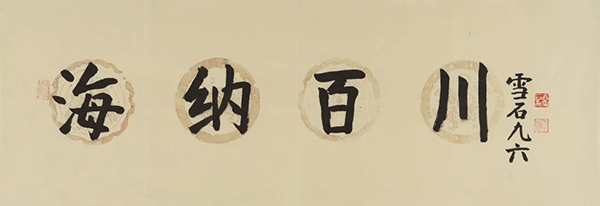 海纳百川
雪石九六